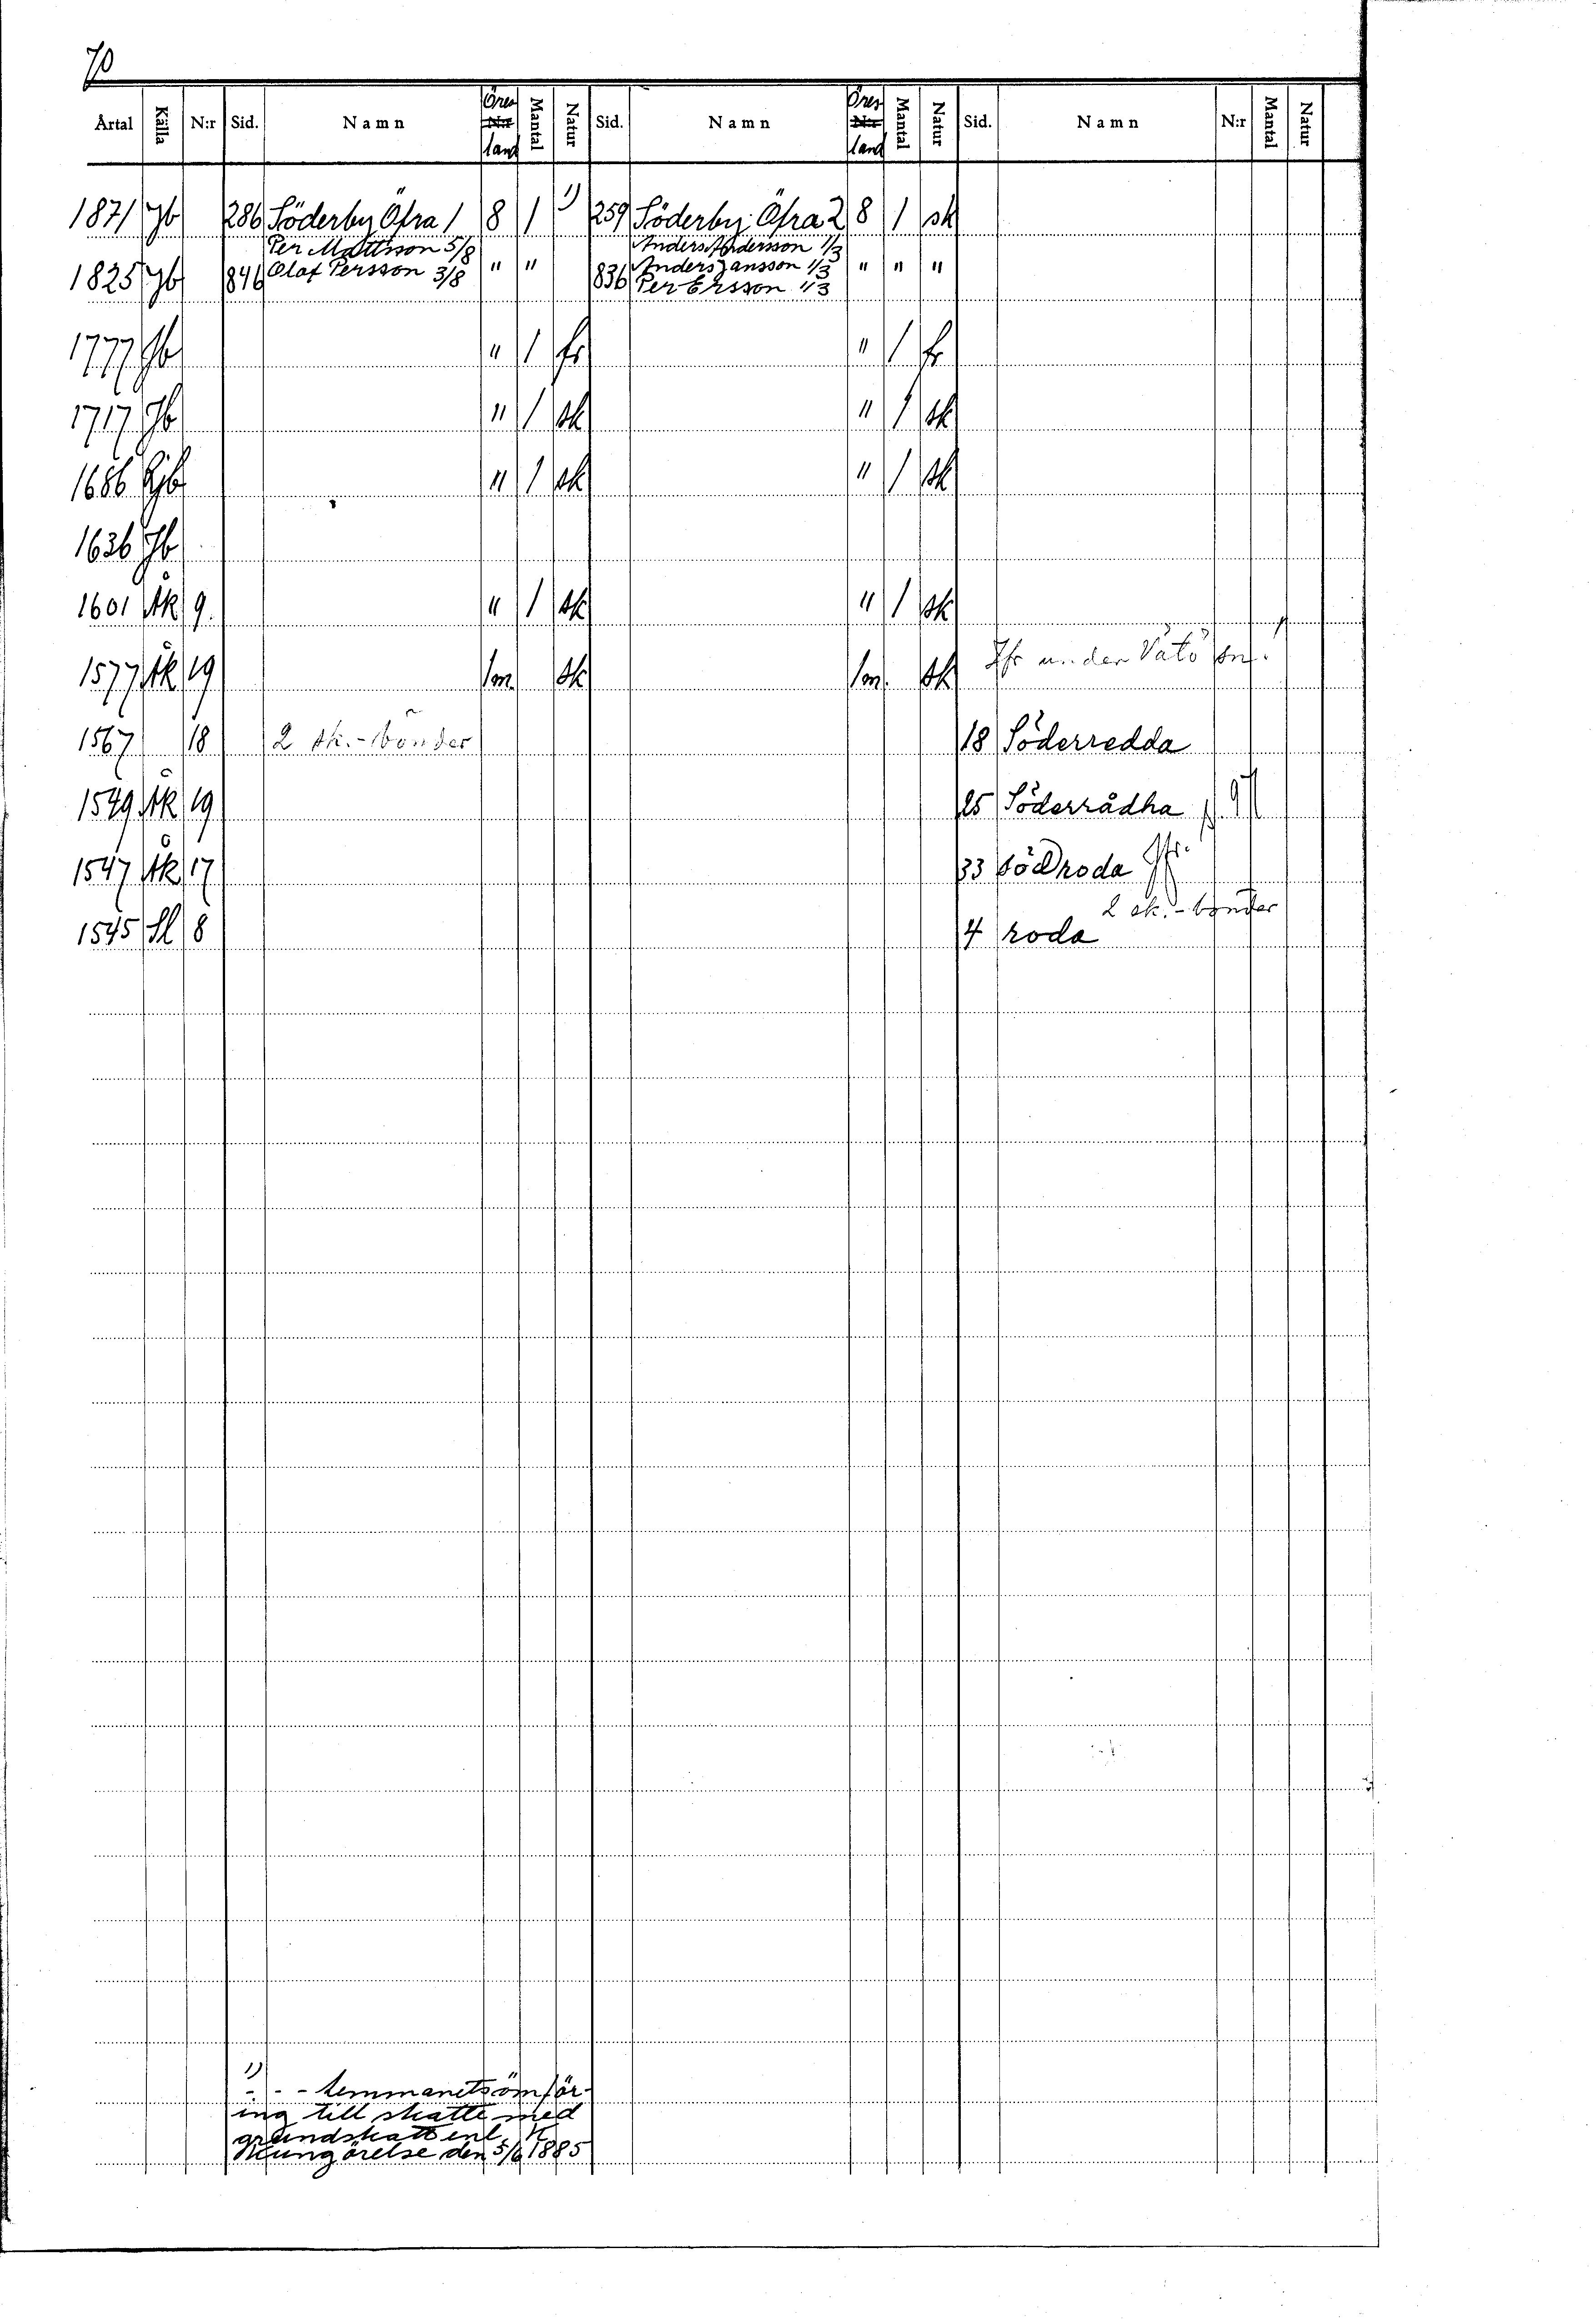 70
Årtal Källa N:r Sid. Namn Öres N:r land Mantal Natur Sid. Namn Öres N:r land Mantal Natur Sid. Namn N:r Mantal Natur
1871 Jb 286 Söderby Öfra 1 8 1 1) 259 Söderby Öfra 2 8 1 sk
Per Mattsson 5/8 Anders Andersson 1/3
1825 Jb 846 Olof Persson 3/8 " " 836 Anders Jansson 1/3 " " "
Per Ersson 1/3
1777 Jb " 1 fr " 1 fr
1717 Jb " 1 sk " 1 sk
1686 Rjb " 1 sk " 1 sk
1636 Jb
1601 Åk 9. " 1 sk " 1 sk
1577 Åk 19 1m. sk 1m. sk Jfr under Vätö sn.!
1567 18 2 sk.-bönder 18 Söderredda
1549 Åk 19 25 Söderrådha
1547 Åk 17 33 södroda Jfr.
2 sk.-bönder
1545 Sl 8 4 roda
1)
- - - hemmanets omför-
ing till skatte med
grundskatt enl. K
Kungörelse den 5/6 1885